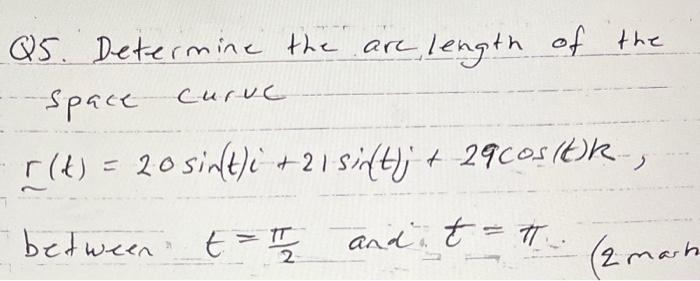 Q5. Determine the arc length of the
space curve
r(t) = 20 sin(t)i + 21 sin(t)j + 29cos(t)k,
between t = π/2 and t = π. (2 mark